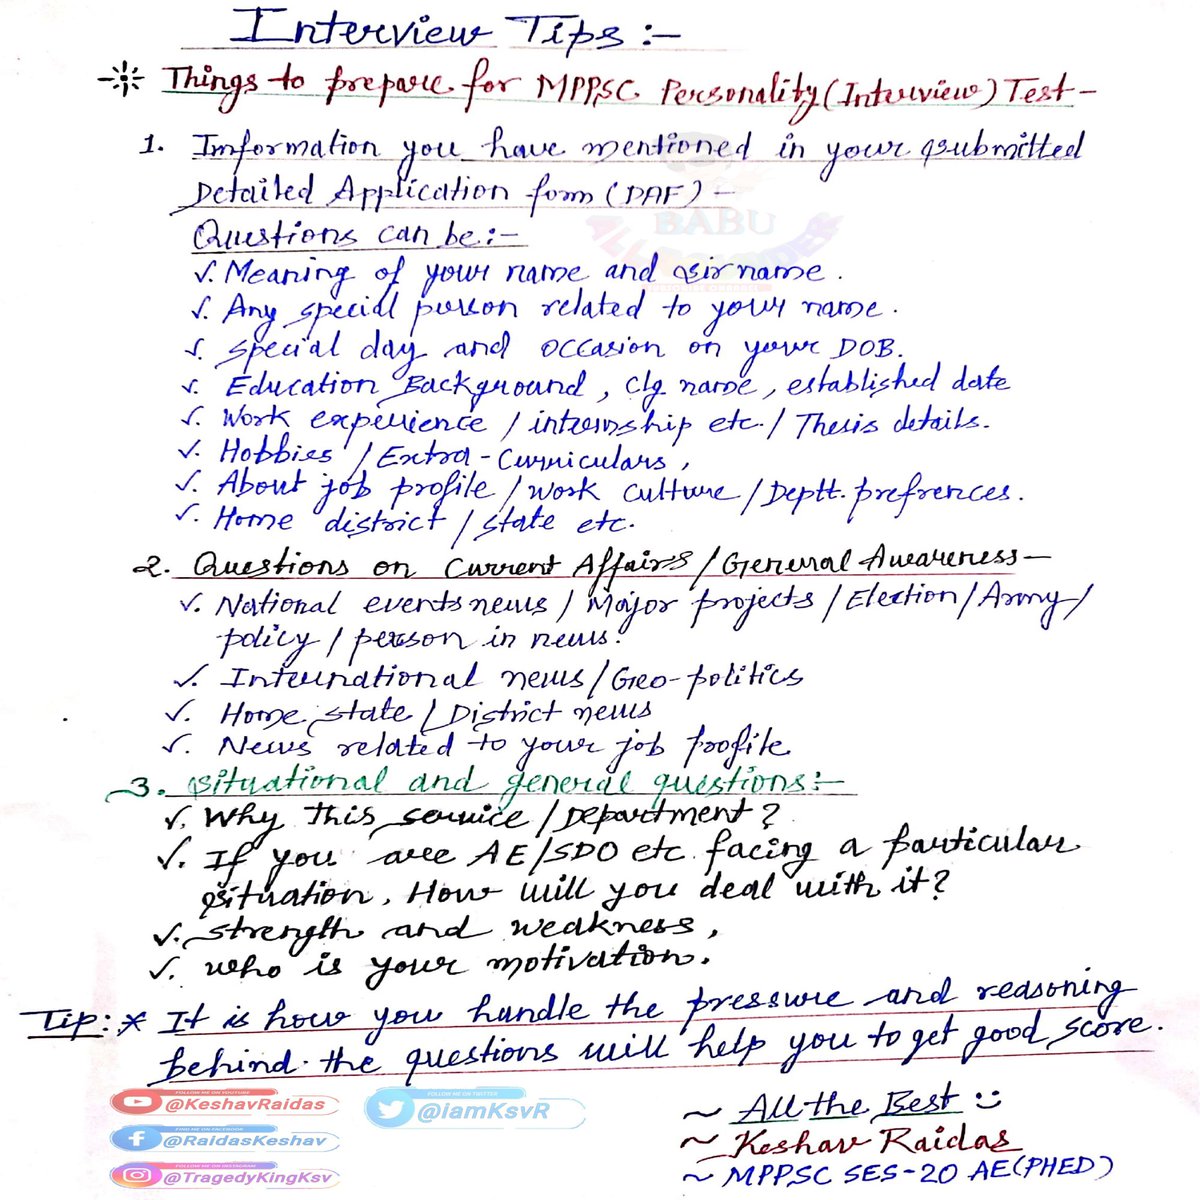 Interview Tips :-
Things to prepare for MPPSC Personality (Interview) Test -
1. Information you have mentioned in your submitted
Detailed Application form (DAF) -
Questions can be :-
✓. Meaning of your name and sirname.
✓. Any special person related to your name.
✓. special day and occasion on your DOB.
✓. Education Background, clg name, established date
✓. Work experience / internship etc. / Thesis details.
✓. Hobbies / Extra-Curriculars,
✓. About job profile / work culture / Deptt. prefrences.
✓. Home district / state etc.
2. Questions on Current Affairs / General Awareness -
✓. National events news / Major projects / Election / Army /
policy / person in news.
✓. International news / Geo-politics
✓. Home state / District news
✓. News related to your job profile
3. situational and general questions :-
✓. Why this service / Department ?
✓. If you are AE/SDO etc. facing a particular
situation, How will you deal with it ?
✓. strength and weakness,
✓. who is your motivation.
Tip : * It is how you handle the pressure and reasoning
behind the questions will help you to get good score.
~ All the Best
~ Keshav Raidas
~ MPPSC SES-20 AE(PHED)
FOLLOW ME ON YOUTUBE
@KeshavRaidas
FOLLOW ME ON TWITTER
@iamKsvR
FIND ME ON FACEBOOK
@RaidasKeshav
FOLLOW ME ON INSTAGRAM
@TragedyKingKsv
BABU